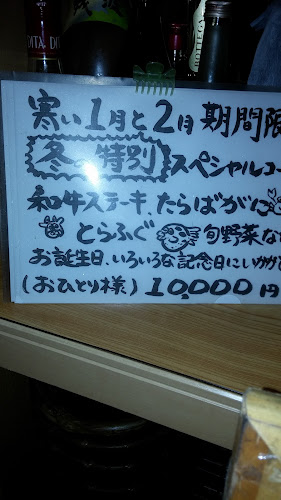 DITA DI
BOTTEGA
寒い1月と2月 期間限
冬の特別 スペシャルコー
和牛ステーキ、たらばがに
とらふぐ 旬野菜な
お誕生日、いろいろな記念日にいかが
(おひとり様) 10,000円